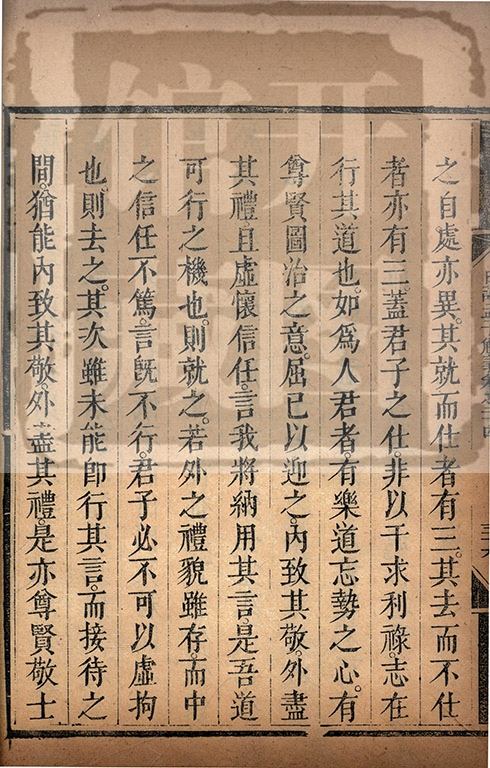 之自處亦異。其就而仕者有三。其去而不仕
者亦有三。蓋君子之仕。非以干求利祿。志在
行其道也。如爲人君者。有樂道忘勢之心。有
尊賢圖治之意。屈己以迎之。內致其敬。外盡
其禮。且虛懷信任。言我將納用其言。是吾道
可行之機也。則就之。若外之禮貌雖存。而中
之信任不篤。言旣不行。君子必不可以虛拘
也。則去之。其次雖未能卽行其言。而接待之
間。猶能內致其敬。外盡其禮。是亦尊賢敬士